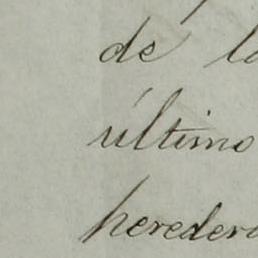 de la
último
heredero